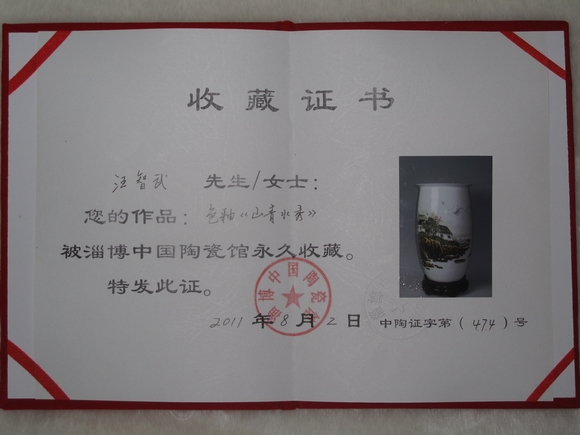 收藏证书
汪智武 先生/女士：
您的作品：色釉《山青水秀》
被淄博中国陶瓷馆永久收藏。
特发此证。
淄博中国陶瓷馆
2011年8月2日 中陶证字第(474)号